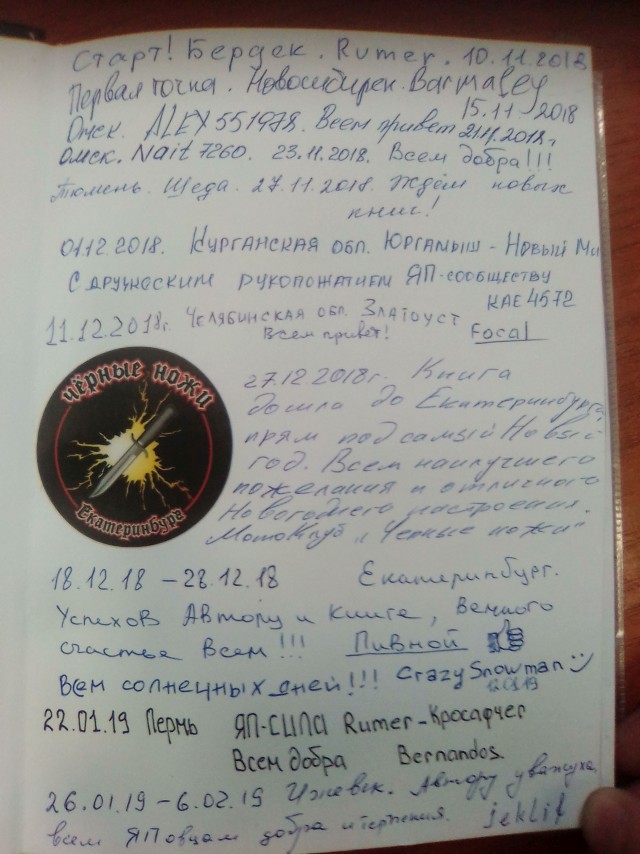 Старт! Бердск. Rumer. 10.11.2018
Первая точка. Новосибирск. Barmaley
15.11-2018
Омск. ALEX551978. Всем привет 21.11.2018г.
Омск. Nait7260. 23.11.2018. Всем добра!!!
Тюмень. Щеда. 27.11.2018. Ждём новых
книг!
01.12.2018. Курганская обл. Юргамыш - Новый Ми
С дружеским рукопожатием ЯП-сообществу
KAE4572
11.12.2018г. Челябинская обл. Златоуст
Всем привет! Focal
чёрные ножи
Екатеринбург
27.12 2018г. Книга
дошла до Екатеринбурга,
прям под самый Новый
год. Всем наилучшего
пожелания и отличного
Новогоднего настроения.
МотоКлуб "Черные ножи"
18.12.18 - 28.12.18 Екатеринбург.
Успехов Автору и Книге, Вечного
счастье Всем!!! Пивной
Всем солнечных дней!!! CrazySnowman
22.01.19 Пермь ЯП-СИЛА Rumer-Кросафчег
Всем добра Bernandos.
26.01.19-6.02.19 Ижевск. Автору уважуха,
всем ЯПовцам добра и терпения. jeklif